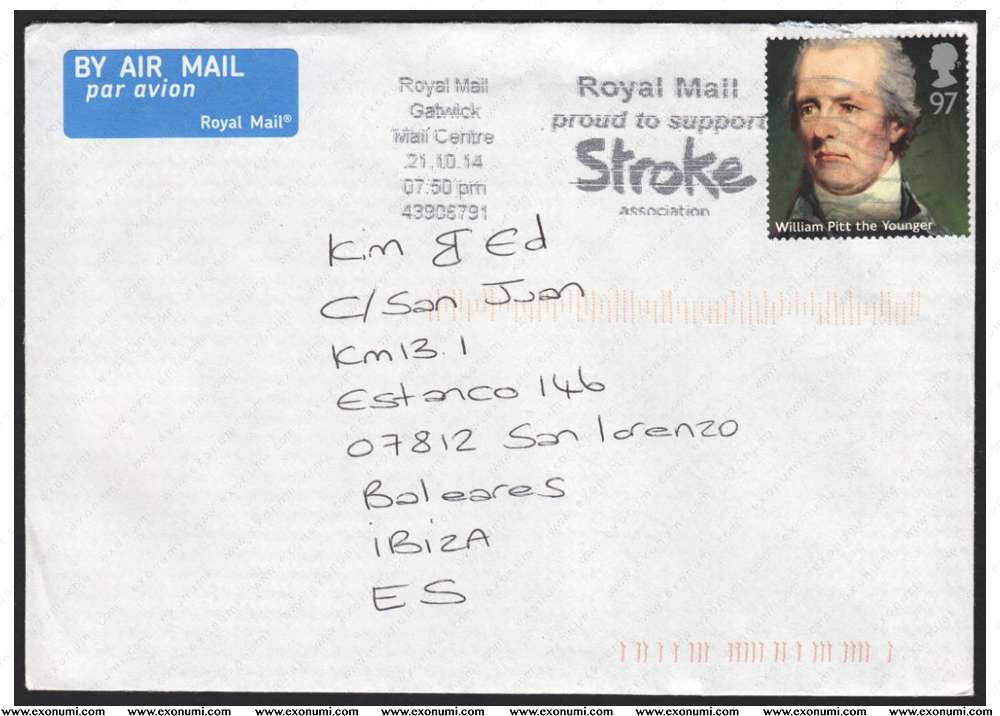 BY AIR MAIL
par avion
Royal Mail®
Royal Mail
Gatwick
Mail Centre
21.10.14
07:50 pm
43906791
Royal Mail
proud to support
Stroke
association
97
William Pitt the Younger
Kim & Ed
C/San Juan
Km 13.1
Estanco 146
07812 San lorenzo
Baleares
iBizA
ES
www.exonumi.com www.exonumi.com www.exonumi.com www.exonumi.com www.exonumi.com www.exonumi.com www.exonumi.com www.exonumi.com